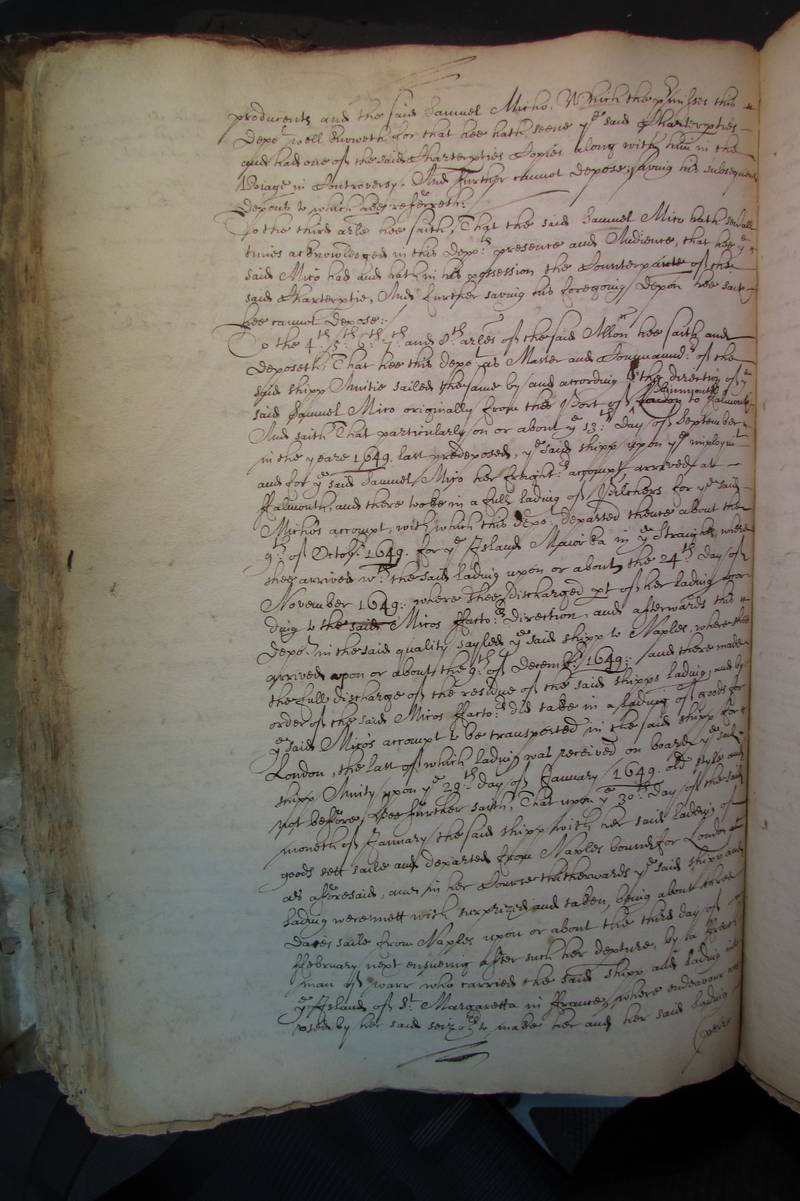 producents and the said Samuel Micho. Which the p<sup>r</sup>misses this
Depo<sup>t</sup> well knoweth for that hee hath seene y<sup>e</sup> said Charterpties
and had one of the said Charterpties Coples along with him in the
Voiage in Controversy. And further cannot depose, saving his subsequent
Depon<sup>s</sup> to which hee referreth.
To the third arle hee saith, That the said Samuel Mico hath severall
times acknowledged in this Depo:<sup>ts</sup> presence and Audience, that hee y<sup>e</sup>
said Mico had and hath in his possession the Counterparte of the
said Charterptie, And further saving his foregoing Depon hee saith
hee cannot Depose:
To the 4<sup>th</sup> 5<sup>th</sup> 6<sup>th</sup> 7<sup>th</sup> and 8<sup>th</sup> arles of the said Allon hee saith and
deposeth That hee this depo<sup>t</sup> as Master and Commannd<sup>r</sup> of the
said shipp Amitie sailed the same by and according to the direction of y<sup>e</sup>
said Samuel Mico originally from the Port of London to Falmouth
And saith That particularly on or about y<sup>e</sup> 13<sup>th</sup> Day of September
in the yeare 1649. last predeposed, y<sup>e</sup> said shipp upon y<sup>e</sup> imploym<sup>t</sup>
and for y<sup>e</sup> said Samuel Mico her freight<sup>rs</sup> accompt arrived at
Falmouth, and there tooke in a full lading of Pilchers for y<sup>e</sup> said
Micho's accompt, with which this depo<sup>t</sup> departed thence about the
9<sup>th</sup> of Octob<sup>r</sup> 1649. for y<sup>e</sup> Island Maiorka in y<sup>e</sup> Straights, where
shee arrived w<sup>th</sup> the said lading upon or about the 24<sup>th</sup> day of
November 1649: where shee discharged pt of her lading
ding to the said Micos Facto:<sup>rs</sup> direction, and afterwards this
Depo<sup>t</sup> in the said quality sayled y<sup>e</sup> said shipp to Naples, where shee
arrived upon or about the 9<sup>th</sup> of Decemb<sup>r</sup> 1649: and there made
the full discharge of the residue of the said shipps lading, and by
order of the said Micos Facto:<sup>rs</sup> did take in a lading of goods for
y<sup>e</sup> said Mico's accompt to be transported in the said shipp for
London, the last of which lading was received on board y<sup>e</sup> said
shipp Amity upon y<sup>e</sup> 29<sup>th</sup> day of January 1649. old style and
not before, Hee further saith, That upon y<sup>e</sup> 30<sup>th</sup> Day of the said
moneth of January the said shipp with her said lading of
goods sett saile and departed from Naples bound for London
as aforesaid, and in her Course thitherwards y<sup>e</sup> said shipp and
lading were mett with surprized and taken, being about three
daies saile from Naples upon or about the third day of
February next ensueing after such her depture, by a French
man of warr who carried the said shipp and lading
y<sup>e</sup> Island of S<sup>t</sup> Margaretta in France, where endeavour
used by her said seizo<sup>rs</sup> to make her and her said lading